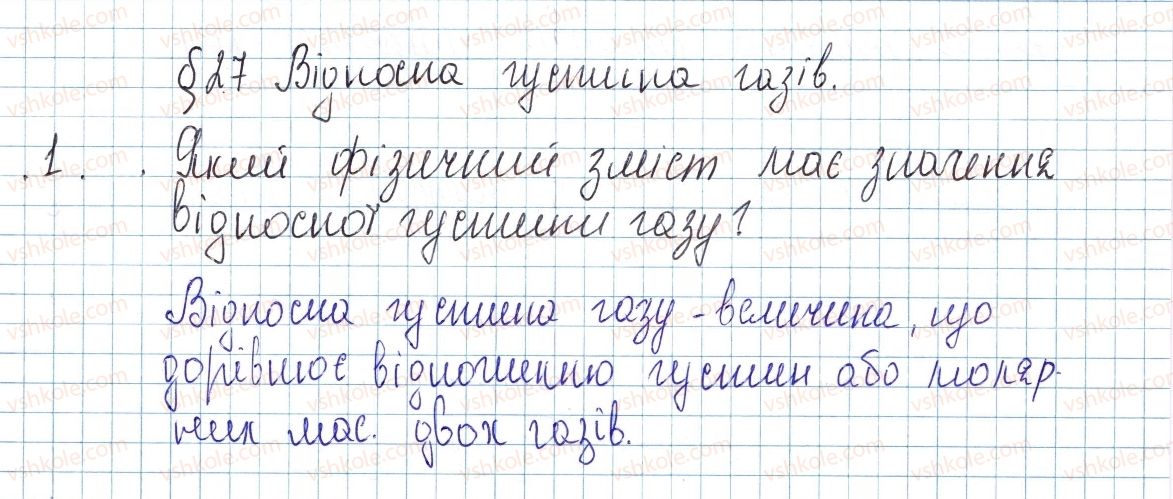 §27 Відносна густина газів.
1. Який фізичний зміст має значення
відносної густини газу?
Відносна густина газу - величина, що
дорівнює відношенню густин або моляр-
них мас. двох газів.